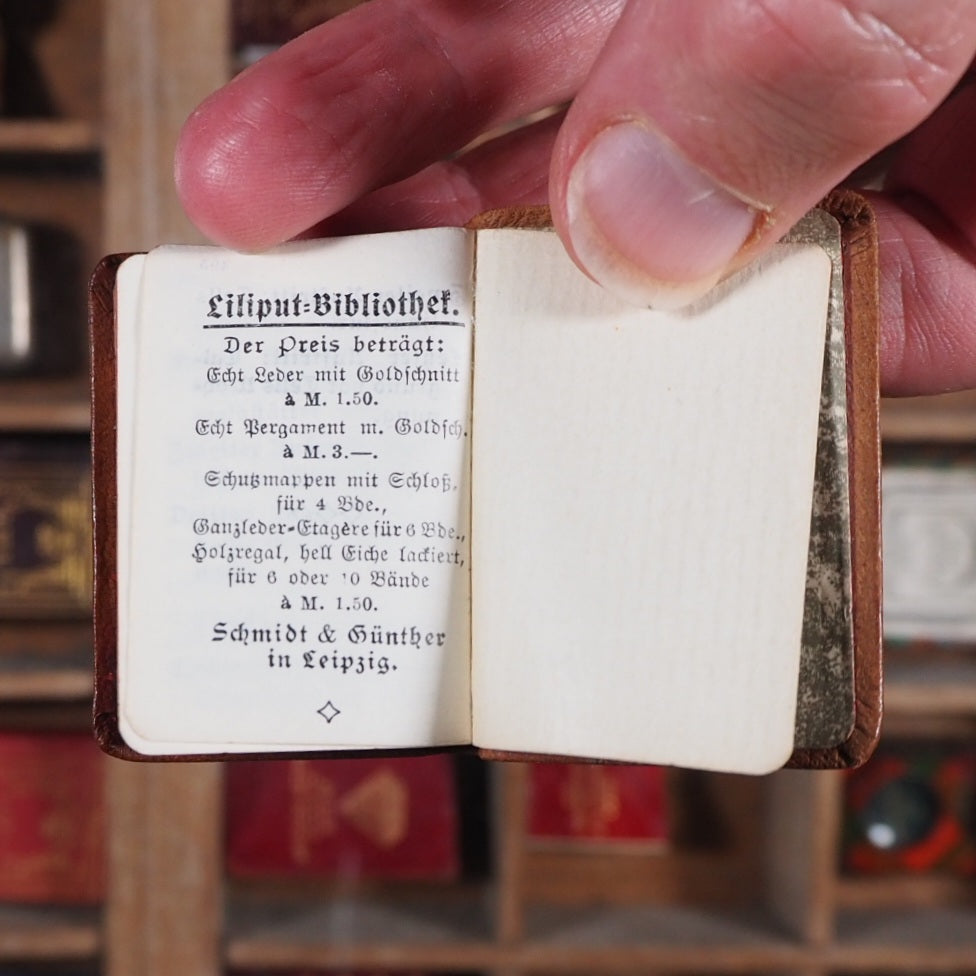 Liliput-Bibliothek.
Der Preis beträgt:
Echt Leder mit Goldschnitt
à M. 1.50.
Echt Pergament m. Goldsch.
à M. 3.—.
Schutzmappen mit Schloß,
für 4 Bde.,
Ganzleder-Etagère für 6 Bde.,
Holzregal, hell Eiche lackiert,
für 6 oder 10 Bände
à M. 1.50.
Schmidt & Günther
in Leipzig.